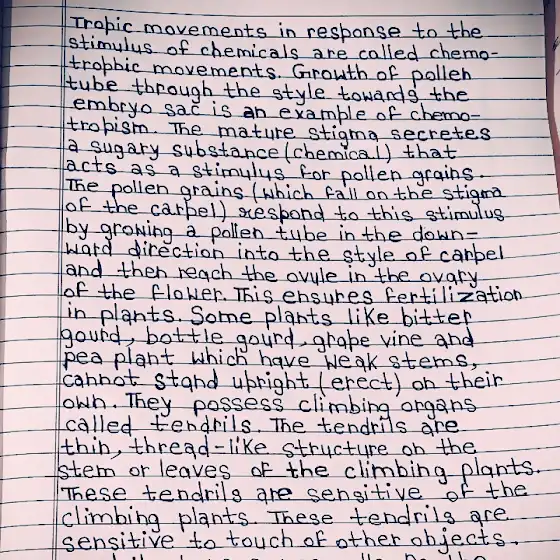 Tropic movements in response to the
stimulus of chemicals are called chemo-
trophic movements. Growth of pollen
tube through the style towards the
embryo sac is an example of chemo-
tropism. The mature stigma secretes
a sugary substance (chemical) that
acts as a stimulus for pollen grains.
The pollen grains (which fall on the stigma
of the carpel) respond to this stimulus
by growing a pollen tube in the down-
ward direction into the style of carpel
and then reach the ovule in the ovary
of the flower. This ensures fertilization
in plants. Some plants like bitter
gourd, bottle gourd, grape vine and
pea plant which have weak stems,
cannot stand upright (erect) on their
own. They possess climbing organs
called tendrils. The tendrils are
thin, thread-like structure on the
stem or leaves of the climbing plants.
These tendrils are sensitive of the
climbing plants. These tendrils are
sensitive to touch of other objects.